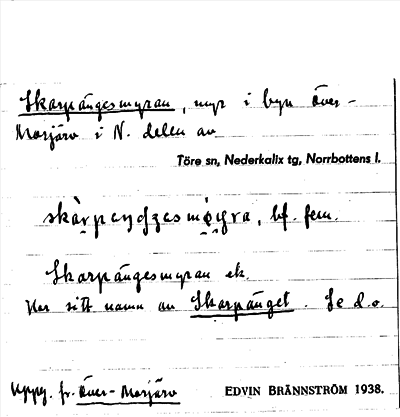 Skarpängesmyran, myr i byn Över-
Morjärv i N. delen av
Töre sn, Nederkalix tg, Norrbottens l.
bf. fem.
Skarpängesmyran ek.
Har sitt namn av Skarpänget. Se d.o.
Uppg. fr. Över-Morjärv
EDVIN BRÄNNSTRÖM 1938.